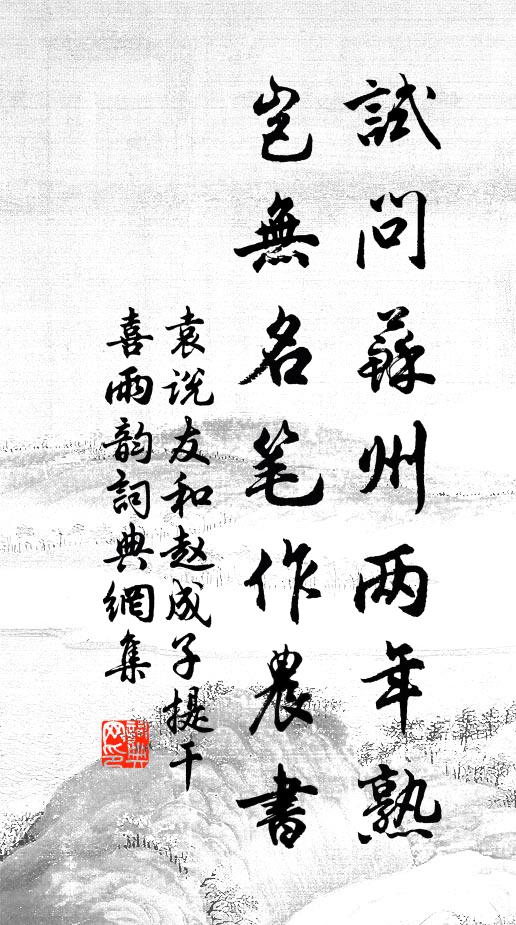 試問蘇州两年熟
豈無名笔作農書
袁说友和赵成子提干
喜雨韵詞典網集